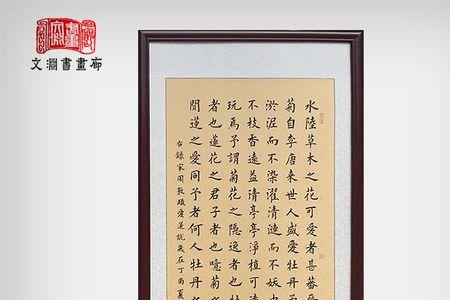 文淵書畫廊
水陸草木之花可愛者甚蕃
菊自李唐來世人盛愛牡丹
淤泥而不染濯清漣而不妖
不枝香遠益清亭亭淨植可遠
玩焉予謂菊花之隱逸者也牡
者也蓮花之君子者也噫菊之
聞蓮之愛同予者何人牡丹之
右錄宋周敦頤愛蓮說歲在丁酉夏